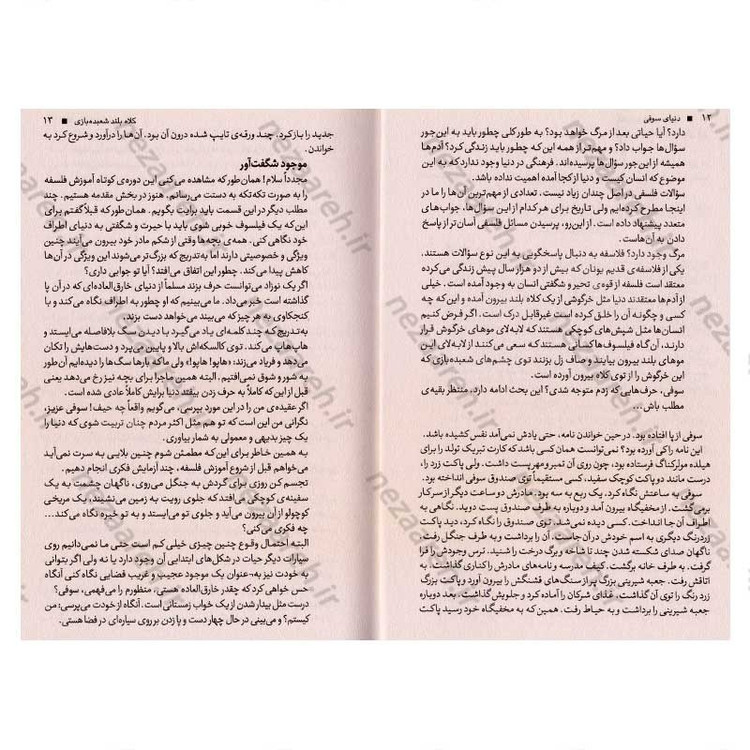 ۱۲ ■ دنیای سوفی
دارد؟ آیا حیاتی بعد از مرگ خواهد بود؟ به طور کلی چطور باید به این جور
سؤال‌ها جواب داد؟ و مهم‌تر از همه این که چطور باید زندگی کرد؟ آدم‌ها
همیشه از این جور سؤال‌ها پرسیده‌اند. فرهنگی در دنیا وجود ندارد که به این
موضوع که انسان کیست و دنیا از کجا آمده اهمیت نداده باشد.
سؤالات فلسفی در اصل چندان زیاد نیست. تعدادی از مهم‌ترین آن‌ها را ما در
اینجا مطرح کرده‌ایم ولی تاریخ برای هر کدام از این سؤال‌ها، جواب‌های
متعدد پیشنهاد داده است. از این‌رو، پرسیدن مسائل فلسفی آسان‌تر از پاسخ
دادن به آن‌هاست.
مرگ وجود دارد؟ فلاسفه به دنبال پاسخگویی به این نوع سؤالات هستند.
یکی از فلاسفه‌ی قدیم یونان که بیش از دو هزار سال پیش زندگی می‌کرده
معتقد است فلسفه از قوه‌ی تحیر و شگفتی انسان به وجود آمده است. خیلی
از آدم‌ها معتقدند دنیا مثل خرگوشی از یک کلاه بلند بیرون آمده و این که چه
کسی و چگونه آن را خلق کرده است غیرقابل درک است. اگر فرض کنیم
انسان‌ها مثل شپش‌های کوچکی هستند که لابه‌لای موهای خرگوش قرار
دارند، آن گاه فیلسوف‌ها کسانی هستند که سعی می‌کنند از لابه‌لای این
موهای بلند بیرون بیایند و صاف زل بزنند توی چشم‌های شعبده‌بازی که
این خرگوش را از توی کلاه بیرون آورده است.
سوفی، حرف‌هایی که زدم متوجه شدی؟ این بحث ادامه دارد. منتظر بقیه‌ی
مطلب باش...
سوفی از پا افتاده بود. در حین خواندن نامه، حتی یادش نمی‌آمد نفس کشیده باشد.
این نامه را کی آورده بود؟ نمی‌توانست همان کسی باشد که کارت تبریک تولد را برای
هیلده مولرکناگ فرستاده بود، چون روی آن تمبر و مهر پست داشت. ولی پاکت زرد را،
درست مانند دو پاکت کوچک سفید، کسی مستقیماً توی صندوق سوفی انداخته بود.
سوفی به ساعتش نگاه کرد. یک ربع به سه بود. مادرش دو ساعت دیگر از سر کار
برمی‌گشت. از مخفیگاه بیرون آمد و دوباره به طرف صندوق پست دوید. نگاهی به
اطراف آن جا انداخت. کسی دیده نمی‌شد. توی صندوق را نگاه کرد، دید پاکت
زرد رنگ دیگری به اسم خودش در آن جاست. آن را برداشت و به طرف جنگل رفت.
ناگهان صدای شکسته شدن چند تا شاخه و برگ درخت را شنید. ترس وجودش را فرا
گرفت. به طرف خانه برگشت. کیف مدرسه و نامه‌های مادرش را کناری گذاشت. به
اتاقش رفت. جعبه شیرینی بزرگ پر از سنگ‌های قشنگش را بیرون آورد و پاکت بزرگ
زرد رنگ را توی آن گذاشت. غذای شرکان را آماده کرد و جلویش گذاشت. بعد دوباره
جعبه شیرینی را برداشت و به حیاط رفت. همین که به مخفیگاه خود رسید پاکت
کلاه بلند شعبده‌بازی ■ ۱۳
جدید را باز کرد. چند ورقه‌ی تایپ شده درون آن بود. آن‌ها را درآورد و شروع کرد به
خواندن.
موجود شگفت‌آور
مجدداً سلام! همان‌طور که مشاهده می‌کنی این دوره‌ی کوتاه آموزش فلسفه
را به صورت تکه‌تکه به دستت می‌رسانم. هنوز در بخش مقدمه هستیم. چند
مطلب دیگر در این قسمت باید برایت بگویم. همان‌طور که قبلاً گفتم برای
این که یک فیلسوف خوبی شوی باید با حیرت و شگفتی به دنیای اطراف
خود نگاهی کنی. همه‌ی بچه‌ها وقتی از شکم مادر خود بیرون می‌آیند چنین
ویژگی و خصوصیتی دارند اما به‌تدریج که بزرگ‌تر می‌شوند این ویژگی در آن‌ها
کاهش پیدا می‌کند. چطور این اتفاق می‌افتد؟ آیا تو جوابی داری؟
اگر یک نوزاد می‌توانست حرف بزند مسلماً از دنیای خارق‌العاده‌ای که در آن پا
گذاشته است خبر می‌داد. ما می‌بینیم که او چطور به اطراف نگاه می‌کند و با
کنجکاوی به هر چیز که می‌بیند می‌خواهد دست بزند.
به‌تدریج که چند کلمه‌ای یاد می‌گیرد با دیدن سگ بلافاصله می‌ایستد و
هاپ‌هاپ می‌کند. توی کالسکه‌اش بالا و پایین می‌پرد و دست‌هایش را تکان
می‌دهد و فریاد می‌زند: «هاپو! هاپو!» ولی ما که بارها سگ‌ها را دیده‌ایم آن‌طور
به شور و شوق نمی‌افتیم. البته همین ماجرا برای بچه نیز رخ می‌دهد یعنی
قبل از این که کاملاً به حرف زدن بیفتد دنیا برایش کاملاً عادی شده است.
اگر عقیده‌ی من را در این مورد بپرسی، می‌گویم واقعاً چه حیف! سوفی عزیز،
نگرانی من این است که تو هم مثل اکثر مردم چنان تربیت شوی که دنیا را
یک چیز بدیهی و معمولی به شمار بیاوری.
به همین خاطر برای این که مطمئن شوم چنین بلایی به سرت نمی‌آید
می‌خواهم قبل از شروع آموزش فلسفه، چند آزمایش فکری انجام دهیم.
تجسم کن روزی برای گردش به جنگل می‌روی، ناگهان چشمت به یک
سفینه‌ی کوچکی می‌افتد که جلوی رویت به زمین می‌نشیند، یک مریخی
کوچولو از آن بیرون می‌آید و جلوی تو می‌ایستد و به تو خیره نگاه می‌کند...
چه فکری می‌کنی؟
البته احتمال وقوع چنین چیزی خیلی کم است حتی ما نمی‌دانیم روی
سیارات دیگر حیات در شکل‌های ابتدایی آن وجود دارد یا نه ولی اگر بتوانی
به خودت نیز به‌عنوان یک موجود عجیب و غریب فضایی نگاه کنی آنگاه
حس خواهی کرد که چقدر خارق‌العاده هستی، منظورم را می‌فهمی، سوفی؟
درست مثل بیدار شدن از یک خواب زمستانی است. آنگاه از خودت می‌پرسی: من
کیستم؟ و می‌بینی در حال چهار دست و پا زدن بر روی سیاره‌ای در فضا هستی.
nezareh.ir